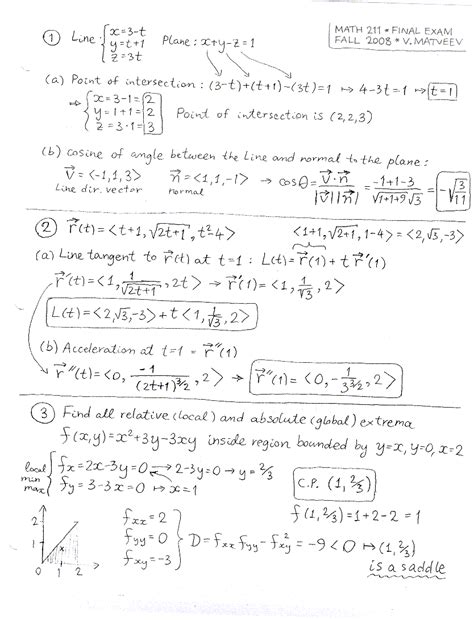 MATH 211 * FINAL EXAM
FALL 2008 * V. MATVEEV
① Line: { x=3-t
y=t+1
z=3t
Plane: x+y-z=1
(a) Point of intersection: (3-t)+(t+1)-(3t)=1 ↦ 4-3t=1 ↦ t=1
⇒ { x=3-1=2
y=1+1=2
z=3·1=3
Point of intersection is (2,2,3)
(b) cosine of angle between the Line and normal to the plane:
v⃗=<-1,1,3> n⃗=<1,1,-1> → cosθ = v⃗·n⃗/|v⃗||n⃗| = -1+1-3/√1+1+9 √3 = -√3/11
Line dir. vector normal
② r⃗(t)=<t+1,√2t+1,t²-4> <1+1,√2+1,1-4>=<2,√3,-3>
(a) Line tangent to r⃗(t) at t=1: L(t)=r⃗(1)+t r⃗'(1)
r⃗'(t)=<1, 1/√2t+1, 2t> → r⃗'(1)=<1, 1/√3, 2>
L(t)=<2,√3,-3>+t<1, 1/√3, 2>
(b) Acceleration at t=1 = r⃗''(1)
r⃗''(t)=<0, -1/(2t+1)^3/2, 2> → r⃗''(1)=<0, -1/3^3/2, 2>
③ Find all relative (local) and absolute (global) extrema
f(x,y)=x²+3y-3xy inside region bounded by y=x, y=0, x=2
local min max { fx=2x-3y=0 → 2-3y=0 → y=2/3
fy=3-3x=0 ↦ x=1
C.P. (1, 2/3)
f(1,2/3)=1+2-2=1
2
1
0 1 2
fxx=2
fyy=0
fxy=-3
} D=fxx fyy - fxy²=-9<0 ↦ (1,2/3)
is a saddle